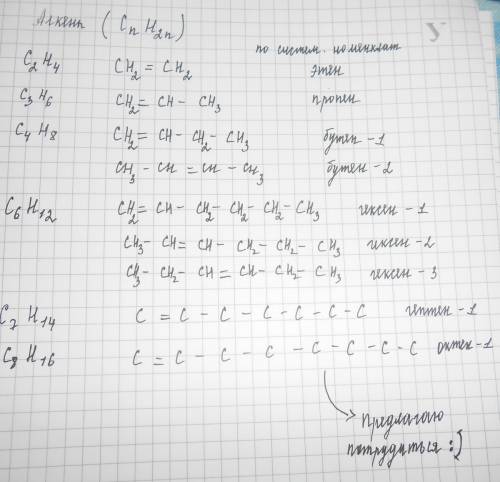 Алкены (CnH2n)
по систем. номенклат
C2H4 CH2 = CH2 этен
C3H6 CH2 = CH - CH3 пропен
C4H8 CH2 = CH - CH2 - CH3 бутен - 1
CH3 - CH = CH - CH3 бутен - 2
C6H12 CH2 = CH - CH2 - CH2 - CH2 - CH3 гексен - 1
CH3 - CH = CH - CH2 - CH2 - CH3 гексен - 2
CH3 - CH2 - CH = CH - CH2 - CH3 гексен - 3
C7H14 C = C - C - C - C - C - C гептен - 1
C8H16 C = C - C - C - C - C - C - C октен - 1
Предлагаю
потрудиться :)